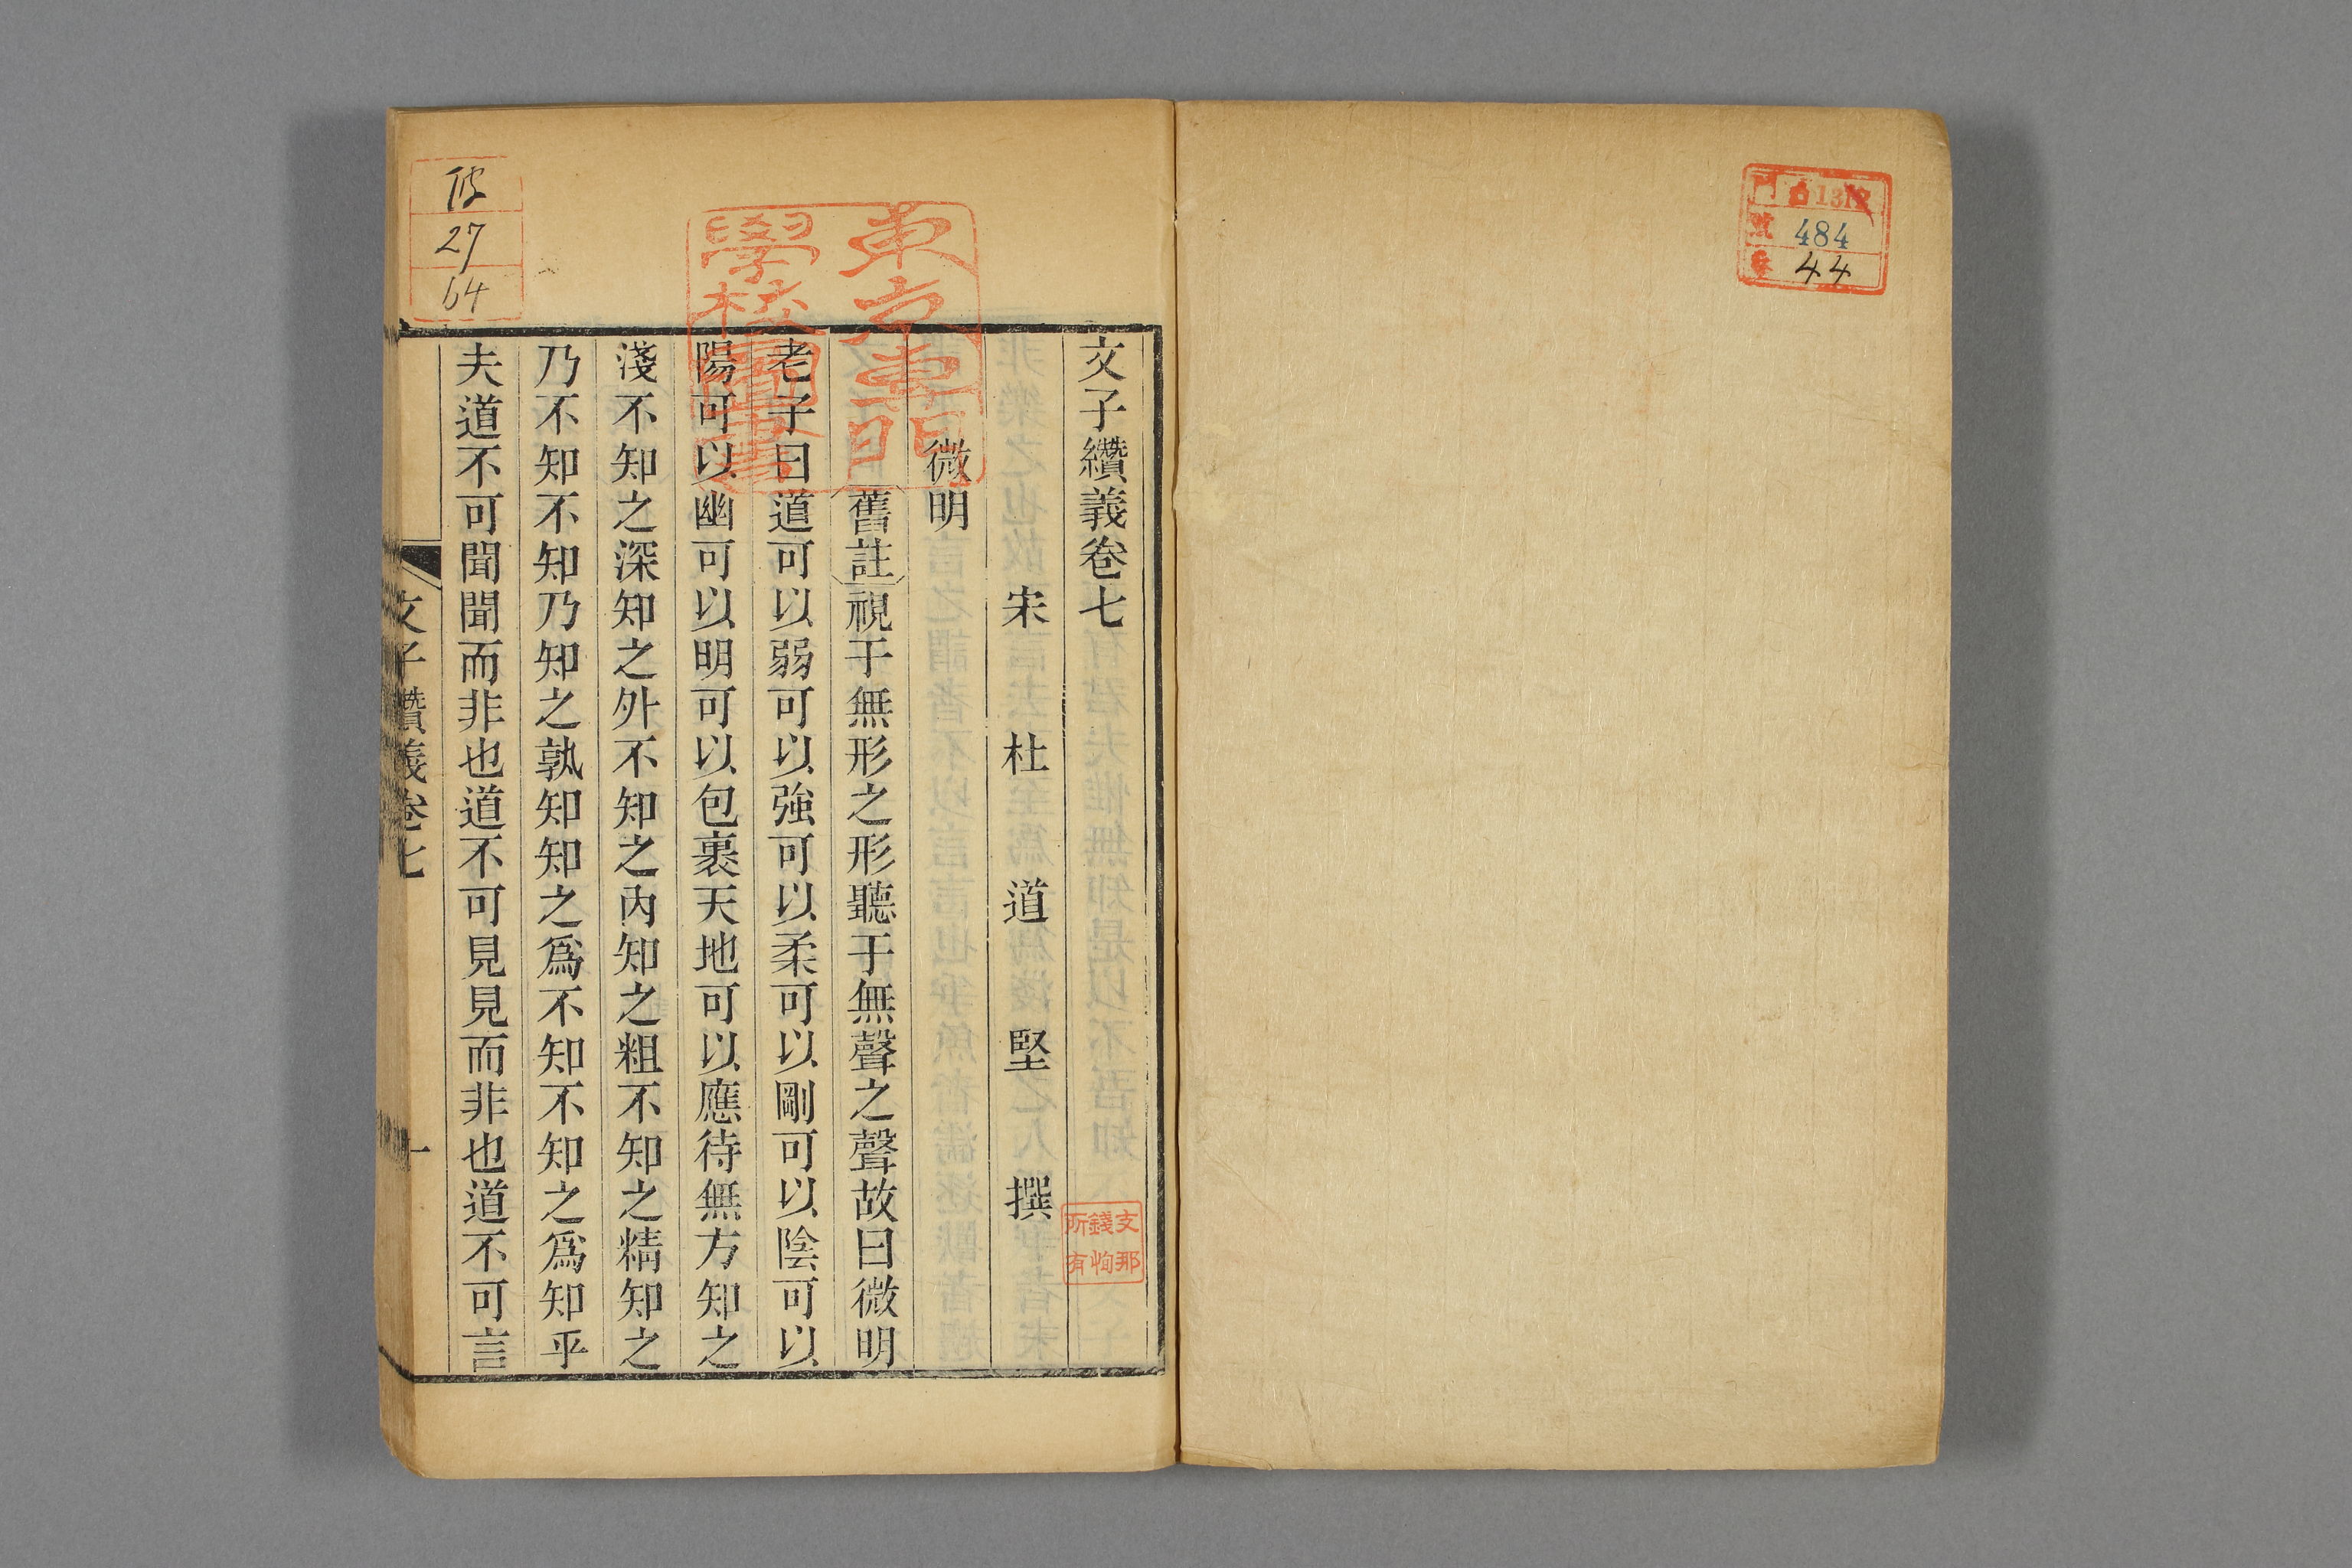 484
44
文子纘義卷七
宋杜道堅撰
微明
舊註視于無形之形聽于無聲之聲故曰微明
老子曰道可以弱可以強可以柔可以剛可以陰可以
陽可以幽可以明可以包裹天地可以應待無方知之
淺不知之深知之外不知之內知之粗不知之精知之
乃不知不知乃知之孰知知之爲不知不知之爲知乎
夫道不可聞聞而非也道不可見見而非也道不可言
文子纘義卷七
一
東京專門
學校圖書
支那
錢恂
所有
27
64